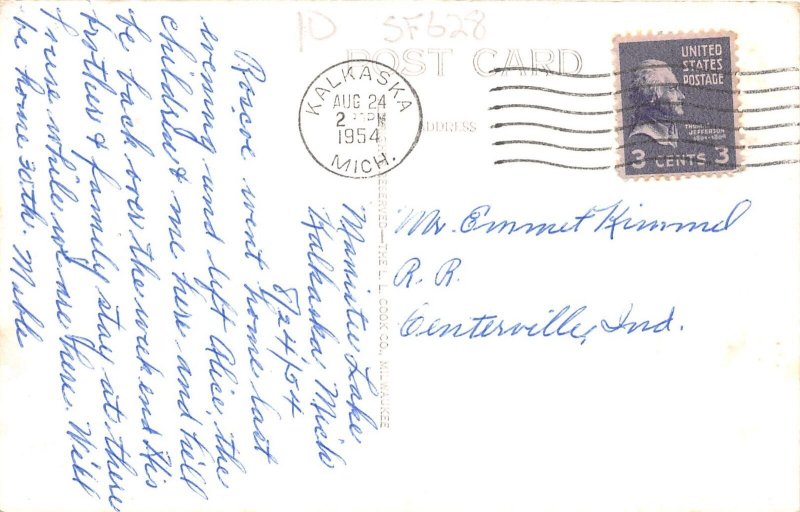 10 SF628
POST CARD
KALKASKA
AUG 24
2 PM
1954
MICH.
ADDRESS
UNITED
STATES
POSTAGE
THOMAS
JEFFERSON
3 CENTS 3
Manistee Lake
Kalkaska, Mich
8/24/54
Roscoe went home last
evening and left Alice, the
children & me here and he'll
be back over the weekend. His
brother & family stay at there
house while we are here. Will
be home 30th. Mable
THE L.L. COOK CO., MILWAUKEE
Mr. Emmet Kimmel
R. R.
Centerville, Ind.